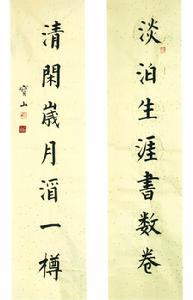 淡泊生涯書数卷
清閑嵗月酒一樽
寶山